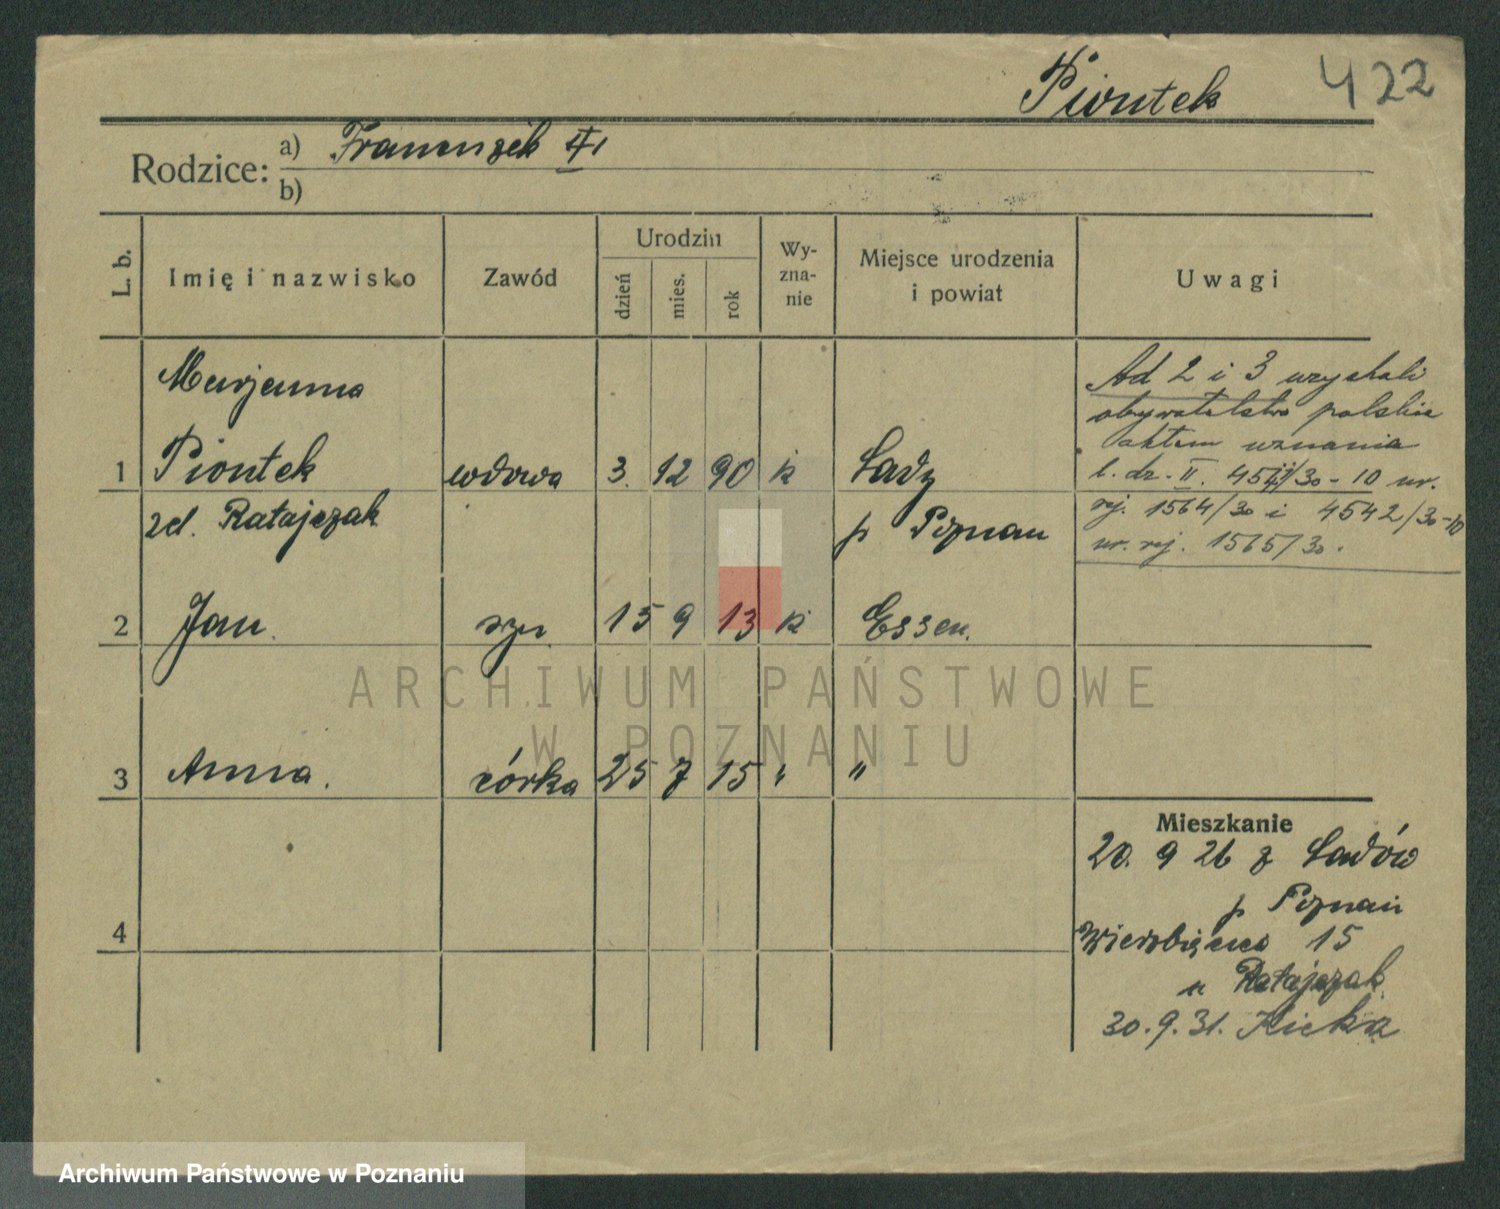 Piontek 422
Rodzice: a) Franciszek
b)
L. b.
Imię i nazwisko
Zawód
Urodzin
dzień
mies.
rok
Wy-
zna-
nie
Miejsce urodzenia
i powiat
Uwagi
Marjanna
1 Piontek wdowa 3. 12 90 k Lady
zd. Ratajczak p Poznań
2 Jan. syn 15 9 13 k Essen.
3 Anna. córka 25 7 15 " "
4
Ad 2 i 3 uzyskali
obywatelstwo polskie
aktem uznania
l. dz. II. 4541/30 - 10 nr.
rej. 1564/30 i 4542/30-10
nr. rej. 1565/30.
Mieszkanie
20. 9 26 z Ladów
p Poznań
Wierzbięcice 15
u Ratajczak
30.9.31.
ARCHIWUM PAŃSTWOWE
W POZNANIU
Archiwum Państwowe w Poznaniu